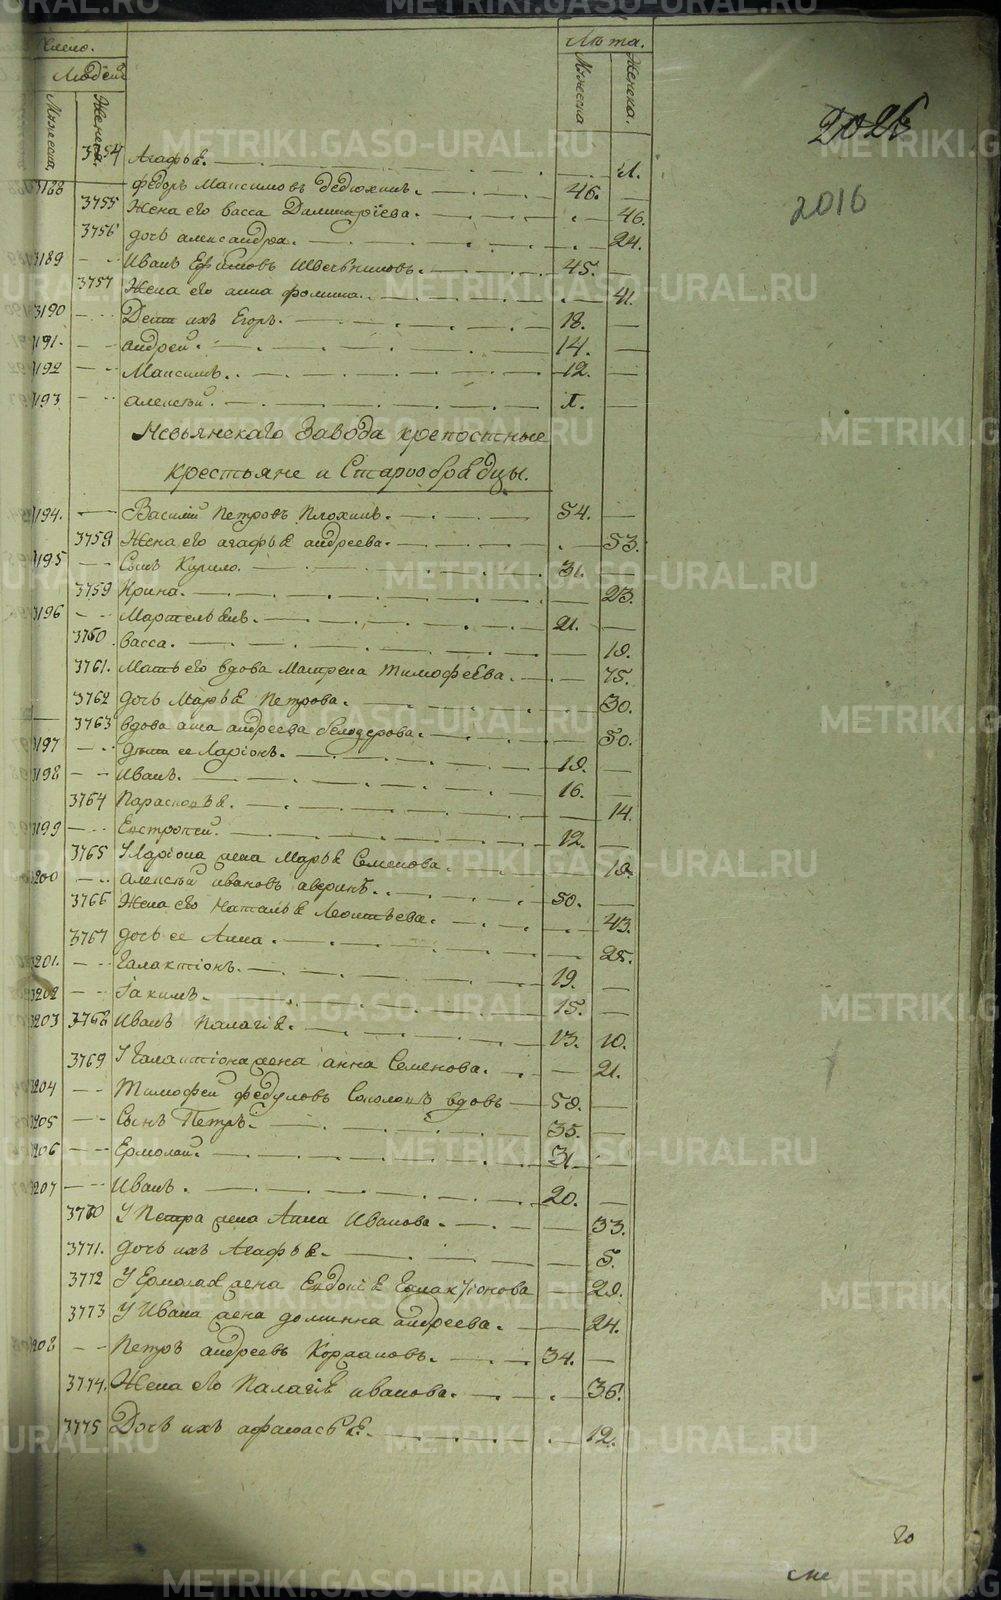 число.
Людей
Мужеска,
Женска.
Лѣта.
Мужеска
Женска.
2025
2016
3754 Агафья.
3188 Федоръ Максимовъ Дедюхинъ. 46.
3755 Жена его васса Дмитрїева. 46.
3756 дочь александра. 24.
3189 Иванъ Ефимовъ 45.
3757 Жена его анна фомина. 41.
3190 Дети ихъ Егоръ. 18.
3191. андреи. 14.
3192 Максимъ. 12.
3193 алексѣи.
Невьянскаго Завода крепостные
крестьяне и Старообрядцы.
3194. Василии Петровъ Плохинъ. 54.
3758 Жена его агафья андреева. 53.
3195 Сынъ Кирило. 31.
3759 Ирина. 23.
3196 Мартемьянъ. 21.
3760 васса. 18.
3761. Мать его вдова Матрена тимофеева. 75.
3762 дочь Марья Петрова. 30.
3763 вдова анна андреева белозерова. 50.
3197 дѣти ее Ларїонъ. 18.
3198 Иванъ. 16.
3764 Парасковья. 14.
3199 Евстропеи. 12.
3765 У Ларїона жена Марья Семенова. 18.
3200 алексѣи ивановъ аверинъ. 50.
3766 Жена его Наталья Леонтьева. 43.
3767 дочь ее Анна. 25.
3201. Галактїонъ. 19.
3202 Iакимъ. 15.
3203 3768 Иванъ Палагїя. 13. 10.
3769 У Галактїона жена анна Семенова. 21.
3204 Тимофеи федуловъ Соколовъ вдовъ 58.
3205 Сынъ Петръ. 35.
3206 Ермолаи. 31.
3207 Иванъ. 20.
3770 У Петра жена Анна Иванова. 33.
3771. дочь ихъ Агафья. 5.
3772 У Ермолая жена Евдокїя Галактїонова 28.
3773 У Ивана жена доминна андреева. 24.
3208 Петръ андреевъ Кордаковъ. 34.
3774. Жена его Палагїя иванова. 36.
3775 Дочь ихъ афанасья. 12.